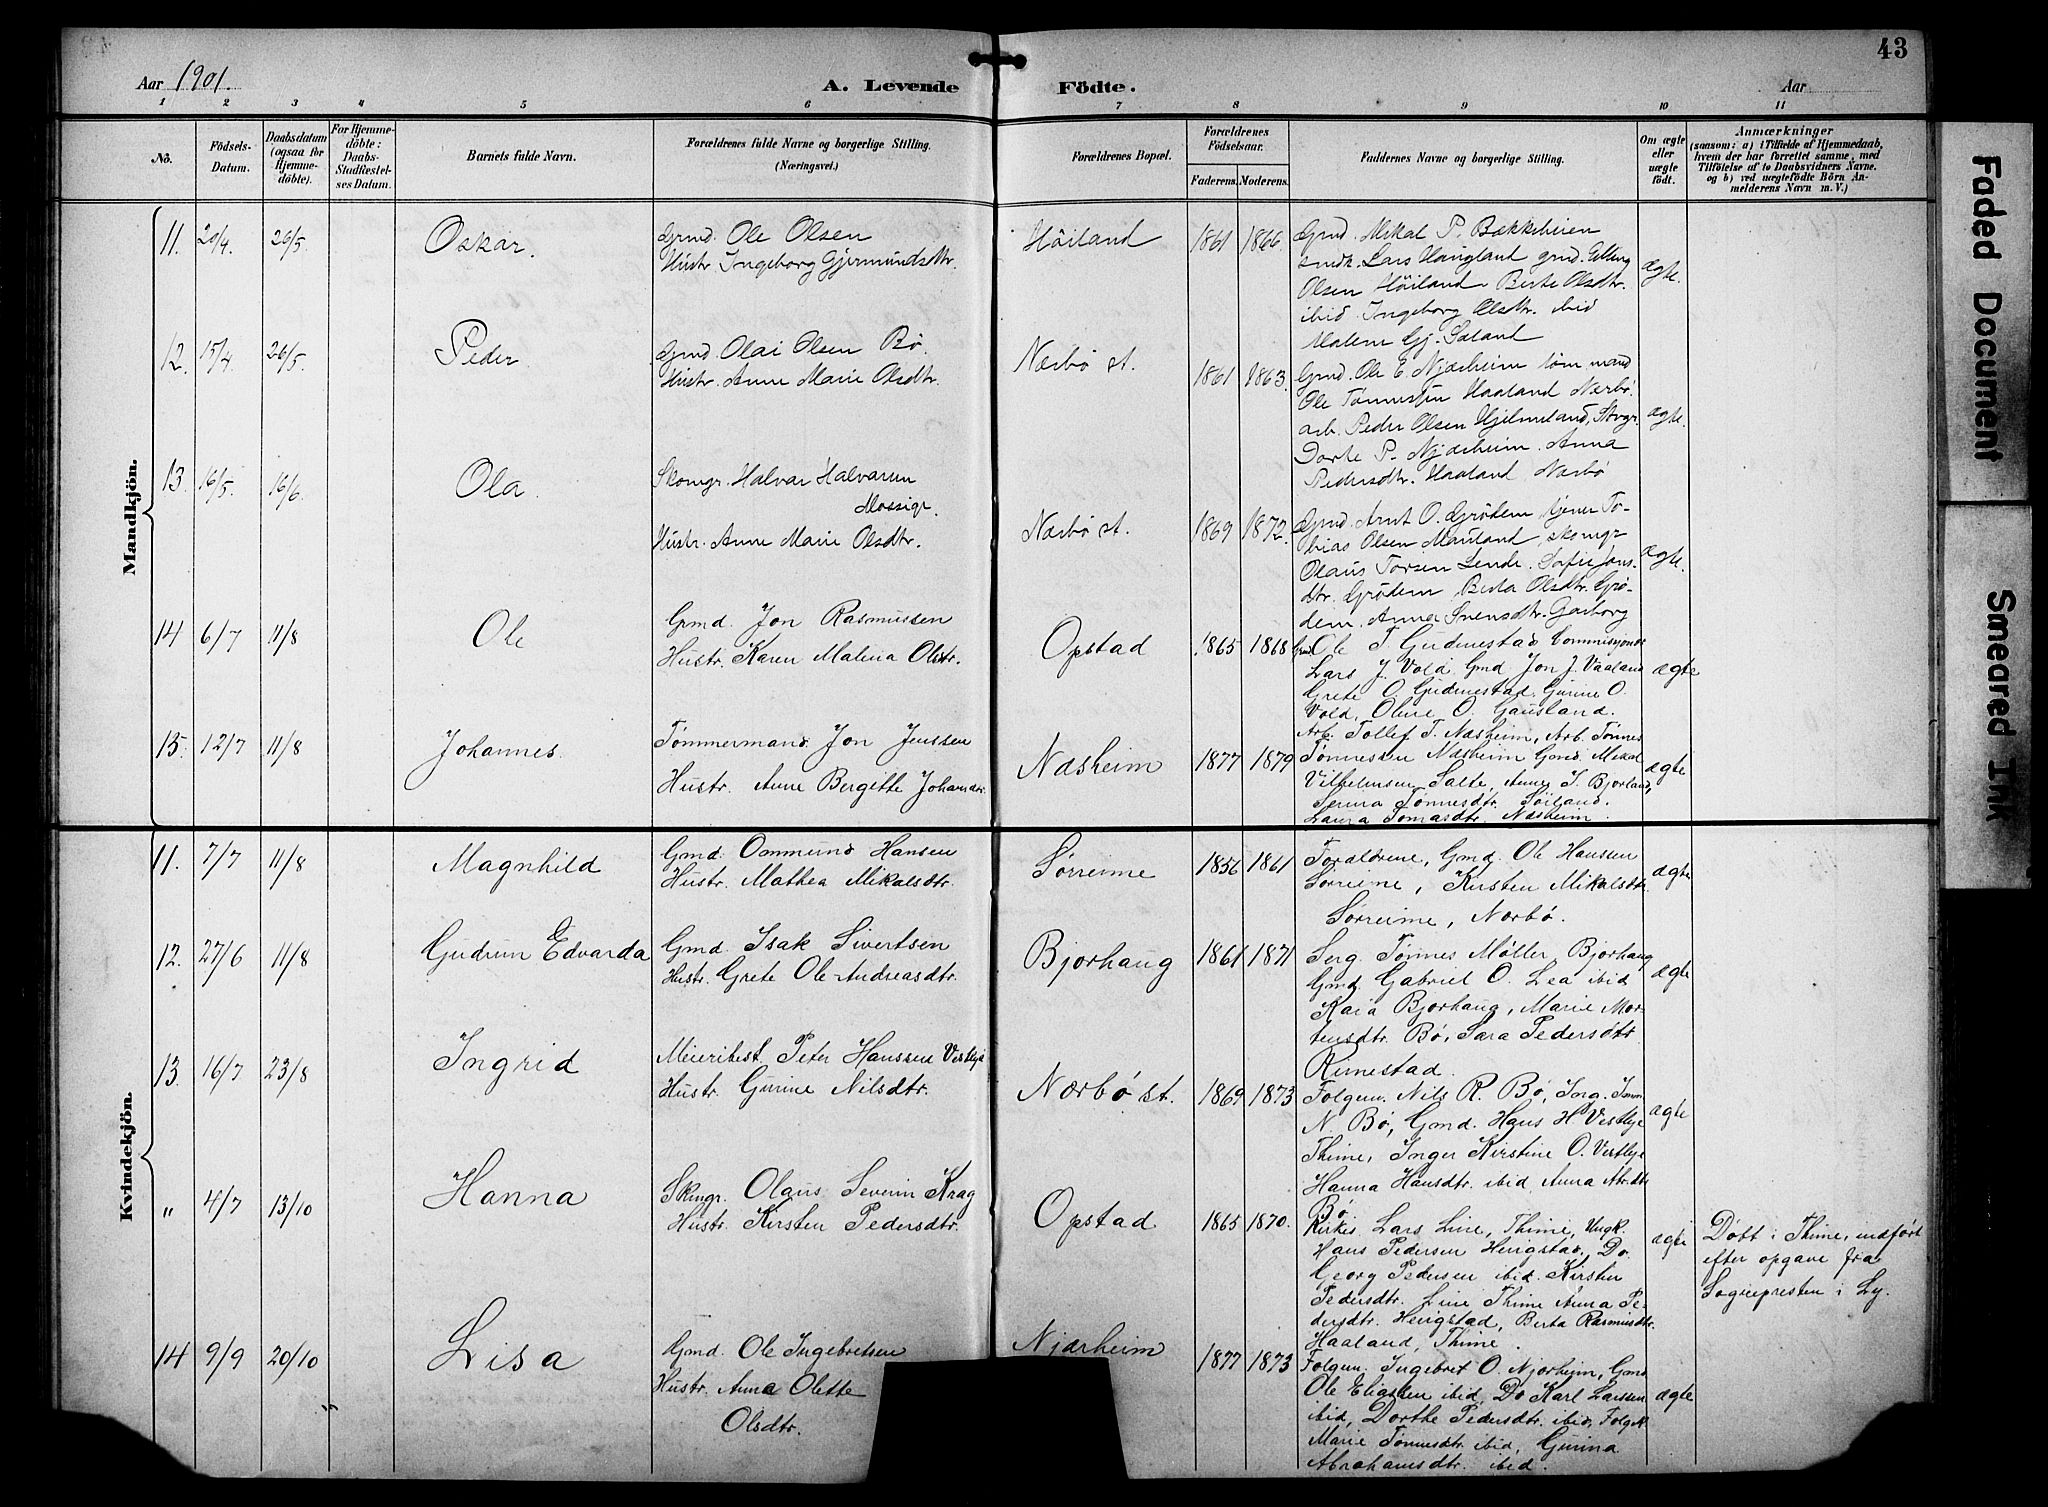 43
Aar 1901.
A. Levende Födte.
Aar
1 2 3 4 5 6 7 8 9 10 11
No.
Födsels-Datum.
Daabsdatum (ogsaa for Hjemme-döbte).
For Hjemme-döbte: Daabs-Stadfæstel-ses Datum.
Barnets fulde Navn.
Forældrenes fulde Navne og borgerlige Stilling. (Næringsvei.)
Forældrenes Bopæl.
Forældrenes Födselsaar.
Faderens. Moderens.
Faddernes Navne og borgerlige Stilling.
Om ægte eller uægte födt.
Anmærkninger
(saasom: a) i Tilfælde af Hjemmedaab, hvem der har forrettet samme, med Tilföielse af to Daabsvidners Navne. og b) ved uægtefödte Börn An-melderens Navn m. V.)
Mandkjön.
11. 20/4. 26/5. Oskar.
Grmd. Ole Olsen
Hustr. Ingeborg Gjermundsdtr.
Höiland 1861 1866.
Grmd. Mikal P. Bækkeheien
smdk. Lars Haugland grmd.
Olsen Höiland. Berte Olsdtr.
ibid. Ingeborg Olsdtr. ibid
Malene Gj.
ægte.
12. 15/4 26/5. Peder
Grmd. Olai Olsen Bø.
Hustr. Anne Marie Olsdtr.
Nærbö st. 1861 1863.
Grmd. Ole E. Njærheim töm mand
Ole Tønnessen Haaland Nærbö.
arb. Peder Olsen Hjelmeland,
Dorte P. Njærheim. Anna
Pedersdtr. Haaland Nærbö
ægte.
13. 16/5. 16/6. Ola.
Skomgr. Halvar Halvarsen
Mossige.
Hustr. Anne Marie Olsdtr.
Nærbö st. 1869 1872.
Grmd. Arnt O. Grödem tjener To-
bias Olsen Mauland, skomgr
Olaus Torsen Lende. Sofie Jons-
dtr. Grödem, Berta Olsdtr. Grö-
dem. Anna Svensdtr. Garborg
ægte.
14 6/7 11/8 Ole
Grmd. Jon Rasmussen
Hustr. Karen Malena Olsdtr.
Opstad 1865 1868
Grmd Ole T. Gudmestad Commissjonær
Lars J. Vold, Gmd Jon J. Vaaland
Grete O. Gudmestad. Gurine O.
Vold, Oline O. Gausland.
ægte
15. 12/7 11/8 Johannes.
Tømmermand Jon Jenssen
Hustr. Anne Bergitte Johansdtr.
Næsheim 1877 1879
Arb. Tollef T. Næsheim, Arb. Tønnes
Tønnessen Næsheim Gmd. Mikal
Vilhelmsen Salte, Anne S. Bjorland,
Serina Tønnesdtr. Söiland.
Laura Tomasdtr. Næsheim.
ægte
Kvindekjön.
11. 7/7 11/8 Magnhild
Gmd. Ommund Hansen
Hustr. Mathea Mikalsdtr.
Sørreime 1856 1861
Forældrene, Gmd. Ole Hansen
Sørreime, Kirsten Mikalsdtr.
Sørreime, Nærbø.
ægte
12. 27/6 11/8 Gudrun Edvarda
Gmd. Isak Sivertsen
Hustr. Grete Ole-Andreasdtr.
Bjorhaug 1861 1871
Serg. Tønnes Møller Bjorhaug
Gmd. Gabriel O. Lea ibid
Kaia Bjorhaug, Marie Mor-
tensdtr. Bø, Sara Pedersdtr
Rimestad.
ægte
13. 16/7 23/8 Ingrid
Meieribest. Peter Hanssen Vestlye
Hustr. Gurine Nilsdtr.
Nærbö st. 1869 1873
Folgem. Nils R. Bø, Ing.
N. Bø, Gmd. Hans H. Vestlye
Thime, Inger Kirstine O. Vestlye
Hanna Hansdtr. ibid, Anna
Bø.
ægte
" 4/7 13/10 Hanna
Skmgr. Olaus Severin Krag
Hustr. Kirsten Pedersdtr.
Opstad. 1865 1870.
Kirkes. Lars Line, Thime, Ungk.
Hans Pedersen Herigstad, Do.
Georg Pedersen ibid. Kirsten
Pedersdtr. Line, Thime Anna Pe-
dersdtr. Herigstad, Berta Rasmusdtr.
Haaland, Thime.
ægte
Døbt i Thime, indført
efter opgave fra
Sognepresten i Ly.
14 9/9 20/10 Lisa
Gmd. Ole Ingebretsen
Hustr. Anna Olette
Olsdtr.
Njærheim 1877 1873
Folgem. Ingebret O. Njærheim, Gmd
Ole Eliassen ibid, Do Karl Larssen
ibid, Dorthe Pedersdtr. ibid,
Marie Tønnesdtr. ibid, Gurina
Abrahamsdtr. ibid.
ægte
Faded Document
Smeared Ink